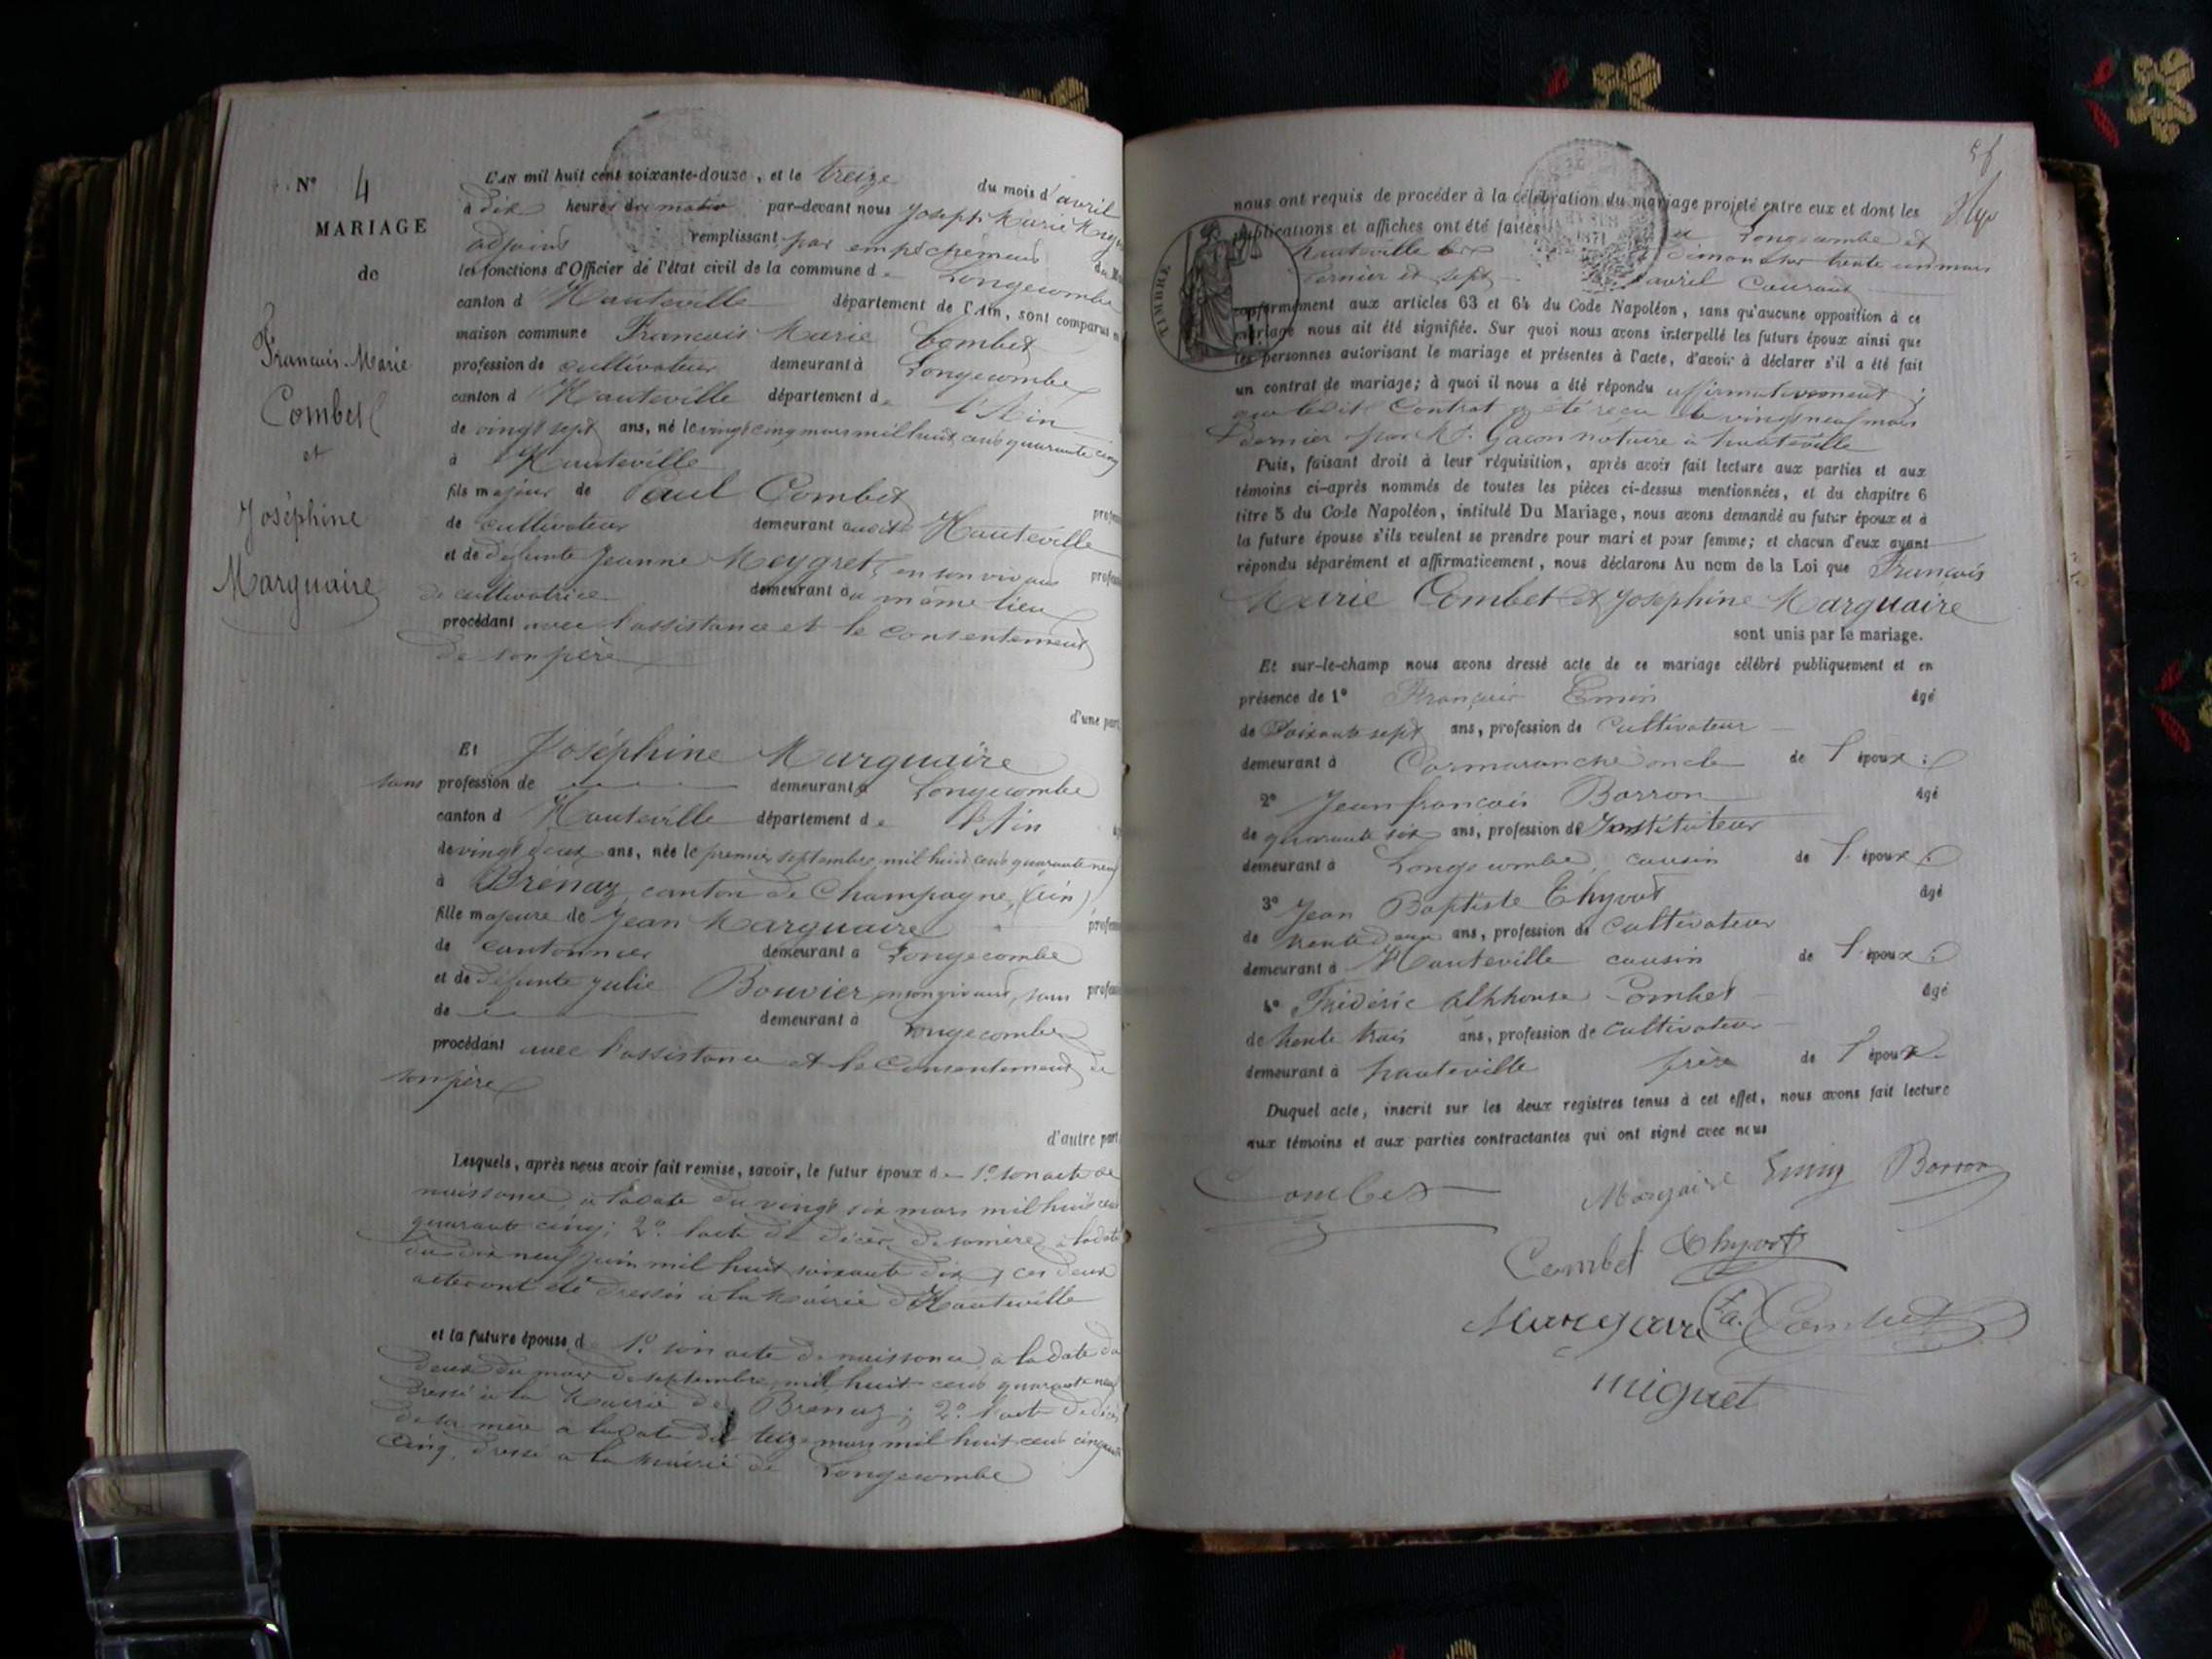 N° 4
MARIAGE
de
Francois-Marie
Combet
et
Joséphine
Marguaire
L'AN mil huit cent soixante-douze, et le treize du mois d'avril
à dix heures du matin par-devant nous Joseph Marie
adjoint remplissant par empêchement du
les fonctions d'Officier de l'état civil de la commune de Longecombe
canton d'Hauteville département de l'Ain, sont comparus en
maison commune Francois Marie Combet
profession de cultivateur demeurant à Longecombe
canton d'Hauteville département de l'Ain
de vingt sept ans, né le vingt cinq mars mil huit cent quarante cinq
à Hauteville
fils majeur de Paul Combet
de cultivateur demeurant audit Hauteville
et de défunte Jeanne Meygret, en son vivant
de cultivatrice demeurant au même lieu
procédant avec l'assistance et le consentement
de son père
d'une part
Et Joséphine Marguaire
sans profession de demeurant à Longecombe
canton d'Hauteville département de l'Ain
de vingt deux ans, née le premier septembre mil huit cent quarante neuf
à Brénaz, canton de Champagne, (Ain)
fille majeure de Jean Marguaire
de cantonnier demeurant à Longecombe
et de défunte Julie Bouvier, en son vivant, sans
de demeurant à Longecombe
procédant avec l'assistance et le consentement de
son père
d'autre part
Lesquels, après nous avoir fait remise, savoir, le futur époux de 1° son acte de
naissance, à la date du vingt six mars mil huit cent
quarante cinq; 2° l'acte de décès de sa mère, à la date
du dix neuf juin mil huit soixante dix, ces deux
actes ont été dressés à la Mairie d'Hauteville
et la future épouse de 1° son acte de naissance, à la date du
deux du mois de septembre mil huit cent quarante neuf
dressé à la Mairie de Brenaz; 2° l'acte de décès
de sa mère à la date du treize mars mil huit cent cinquante
cinq, dressé à la Mairie de Longecombe
nous ont requis de procéder à la célébration du mariage projeté entre eux et dont les
publications et affiches ont été faites à Longecombe et
Hauteville les dimanches trente un mars
dernier et sept avril courant
conformément aux articles 63 et 64 du Code Napoléon, sans qu'aucune opposition à ce
mariage nous ait été signifiée. Sur quoi nous avons interpellé les futurs époux ainsi que
les personnes autorisant le mariage et présentes à l'acte, d'avoir à déclarer s'il a été fait
un contrat de mariage; à quoi il nous a été répondu affirmativement;
que ledit Contrat a été reçu le vingt neuf mars
dernier par Me. Gacon notaire à hauteville
Puis, faisant droit à leur réquisition, après avoir fait lecture aux parties et aux
témoins ci-après nommés de toutes les pièces ci-dessus mentionnées, et du chapitre 6
titre 5 du Code Napoléon, intitulé Du Mariage, nous avons demandé au futur époux et à
la future épouse s'ils veulent se prendre pour mari et pour femme; et chacun d'eux ayant
répondu séparément et affirmativement, nous déclarons Au nom de la Loi que Francois
Marie Combet et Joséphine Marguaire
sont unis par le mariage.
Et sur-le-champ nous avons dressé acte de ce mariage célébré publiquement et en
présence de 1° François Emin âgé
de Soixante sept ans, profession de Cultivateur
demeurant à Cormaranche oncle de l'époux;
2° Jean francois Borron âgé
de quarante six ans, profession de Instituteur
demeurant à Longecombe, cousin de l'époux;
3° Jean Baptiste Thyvot âgé
de trente deux ans, profession de Cultivateur
demeurant à Hauteville cousin de l'époux;
4° Frédéric Alphonse Combet âgé
de trente trois ans, profession de cultivateur
demeurant à hauteville frère de l'époux.
Duquel acte, inscrit sur les deux registres tenus à cet effet, nous avons fait lecture
aux témoins et aux parties contractantes qui ont signé avec nous
Combet Margaire Emin Borron
Combet Thyvot
Margaire Fa. Combet
miguet
TIMBRE
1871